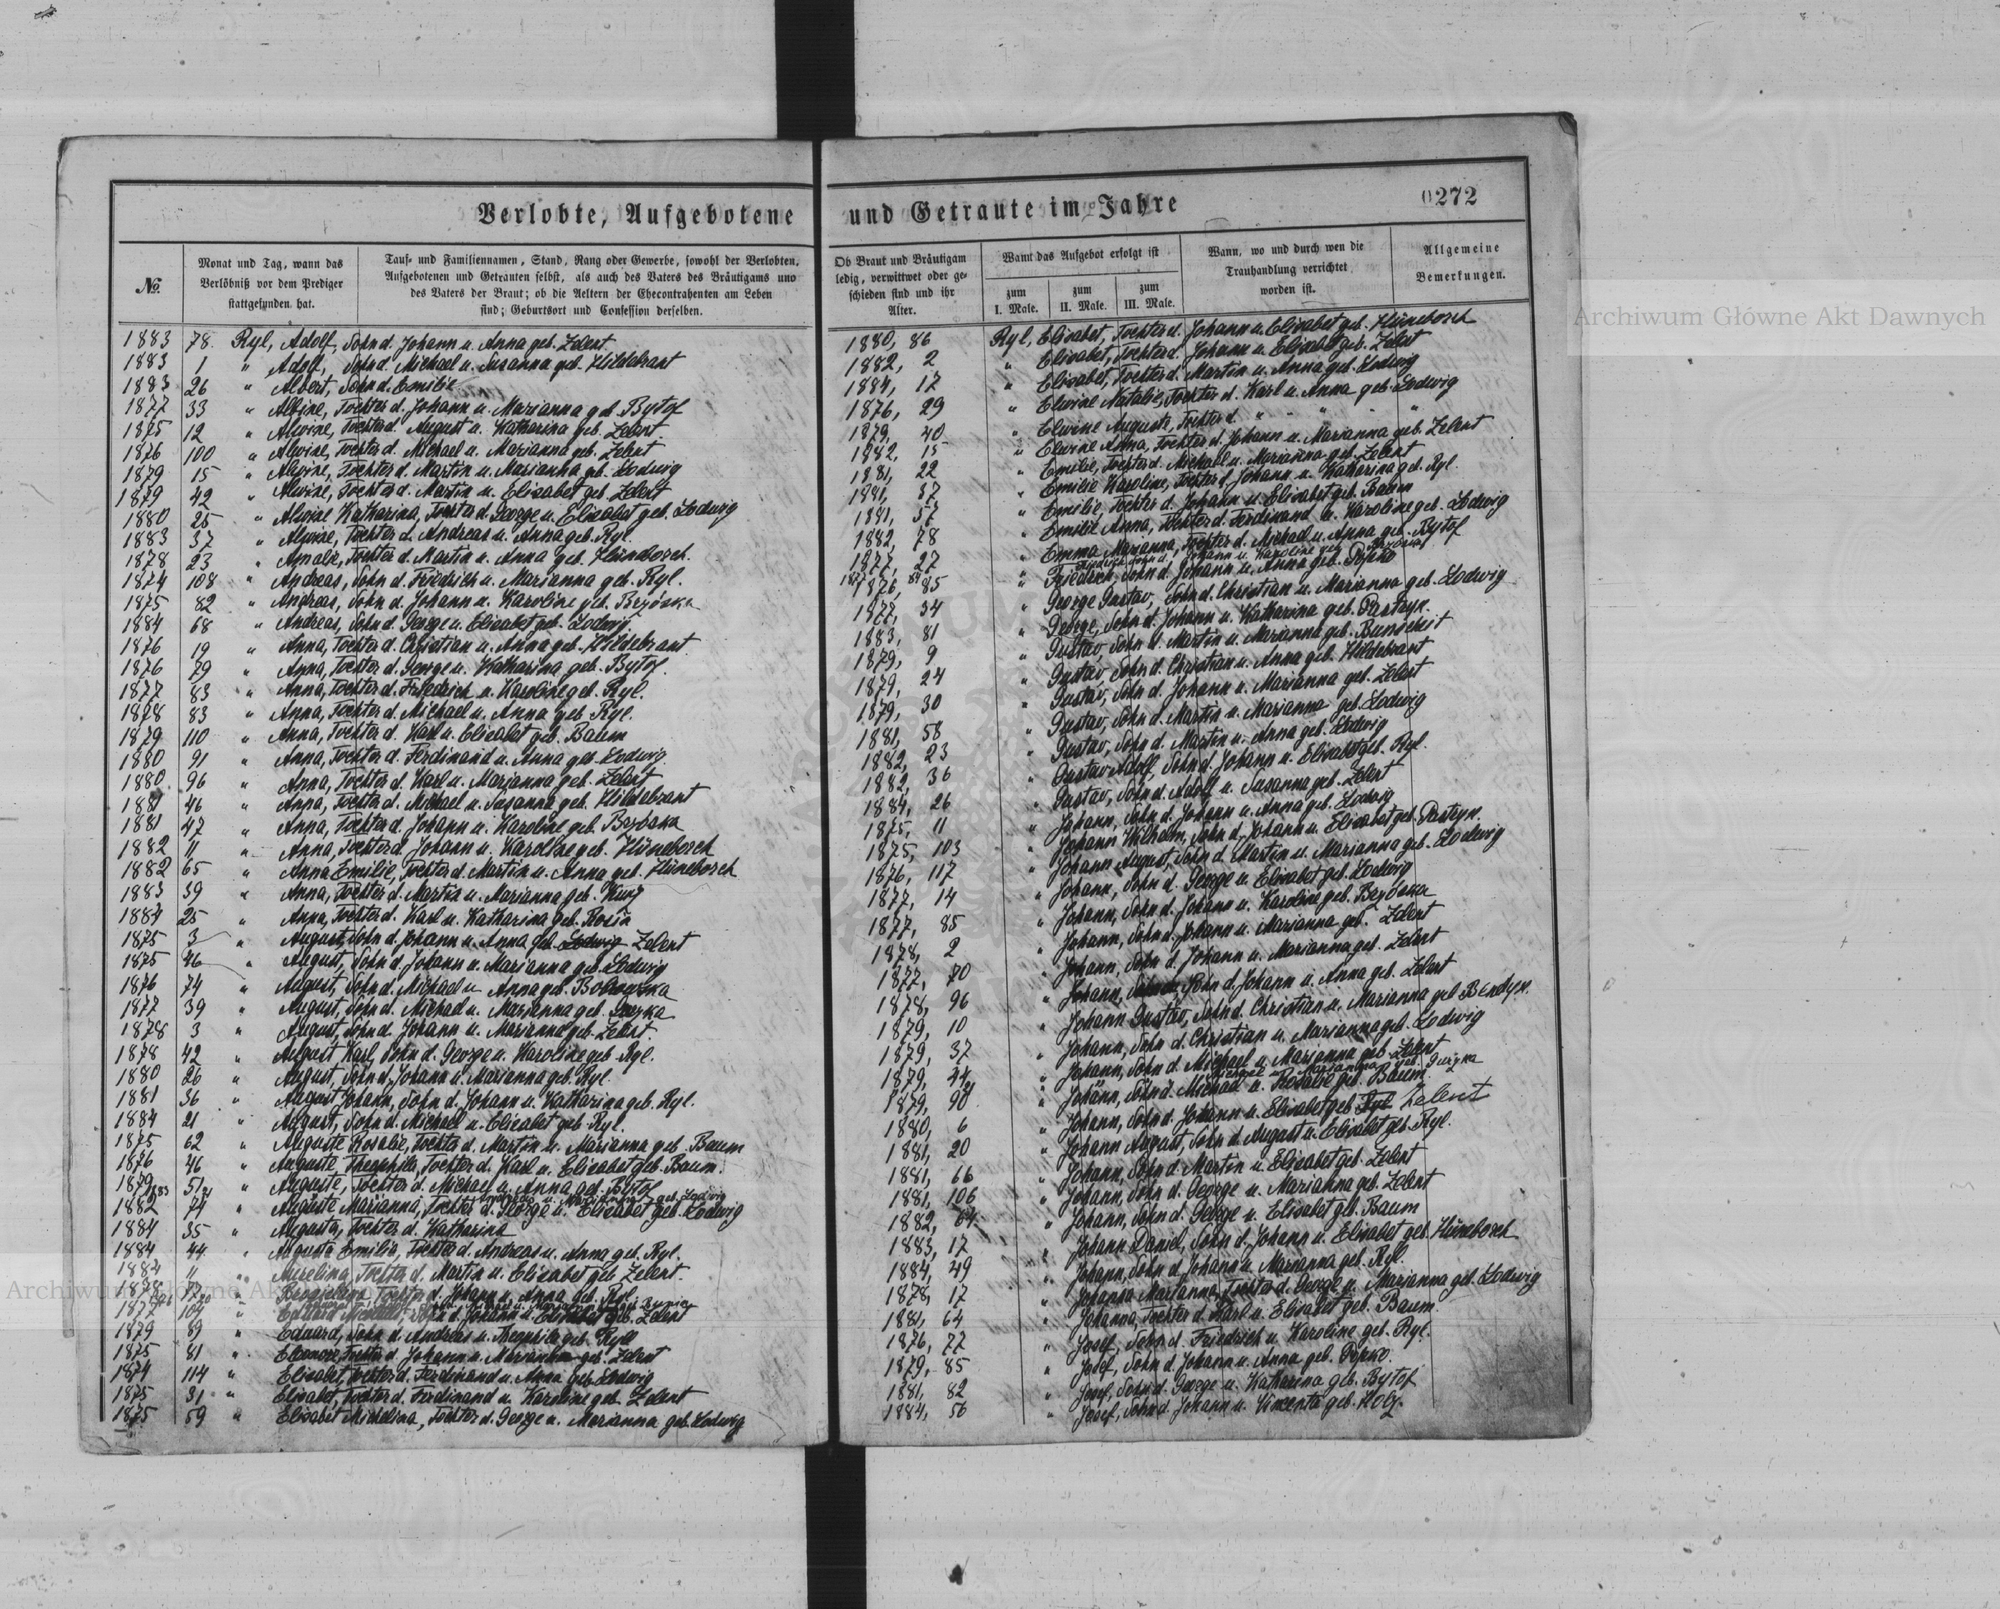 0272
Verlobte, Aufgebotene und Getraute im Jahre
№
Monat und Tag, wann das
Verlöbniß vor dem Prediger
stattgefunden hat.
Tauf- und Familiennamen, Stand, Rang oder Gewerbe, sowohl der Verlobten,
Aufgebotenen und Getrauten selbst, als auch des Vaters des Bräutigams und
des Vaters der Braut; ob die Aeltern der Ehecontrahenten am Leben
sind; Geburtsort und Confession derselben.
Ob Braut und Bräutigam
ledig, verwittwet oder ge-
schieden sind und ihr
Alter.
Wann das Aufgebot erfolgt ist
zum
I. Male.
zum
II. Male.
zum
III. Male.
Wann, wo und durch wen die
Trauhandlung verrichtet
worden ist.
Allgemeine
Bemerkungen.
1883 78. Ryl, Adolf, Sohn d. Johann u. Anna geb. Zelent
1883 1 " Adolf, Sohn d. Michael u. Susanna geb. Hildebrant
1883 26 " Albert, Sohn d. Emilie
1877 33 " Alvine, Tochter d. Johann u. Marianna geb. Bytof
1875 12 " Alwine, Tochter d. August u. Katharina geb. Zelent
1876 100 " Alwine, Tochter d. Michael u. Marianna geb. Zelent
1879 15 " Alwine, Tochter d. Martin u. Marianna geb. Lodwig
1879 42 " Alwine, Tochter d. Martin u. Elisabet geb. Zelent
1880 25 " Alwine Katharina, Tochter d. George u. Elisabet geb. Lodwig
1883 37 " Alwine, Tochter d. Andreas u. Anna geb. Ryl.
1878 23 " Amalie, Tochter d. Martin u. Anna geb. Hünebosch.
1874 108 " Andreas, Sohn d. Friedrich u. Marianna geb. Ryl.
1875 82 " Andreas, Sohn d. Johann u. Karoline geb. Brzóska
1884 68 " Andreas, Sohn d. George u. Elisabet geb. Lodwig.
1876 19 " Anna, Tochter d. Christian u. Anna geb. Hildebrant.
1876 79 " Anna, Tochter d. George u. Katharina geb. Bytof.
1877 83 " Anna, Tochter d. Friedrich u. Karoline geb. Ryl.
1878 83 " Anna, Tochter d. Michael u. Anna geb. Ryl.
1879 110 " Anna, Tochter d. Karl u. Elisabet geb. Baum
1880 91 " Anna, Tochter d. Ferdinand u. Anna geb. Lodwig.
1880 96 " Anna, Tochter d. Karl u. Marianna geb. Zelent
1881 46 " Anna, Tochter d. Michael u. Susanna geb. Hildebrant
1881 47 " Anna, Tochter d. Johann u. Karoline geb. Brzóska
1882 11 " Anna, Tochter d. Johann u. Karoline geb. Hünebosch
1882 65 " Anna Emilie, Tochter d. Martin u. Anna geb. Hünebosch
1883 39 " Anna, Tochter d. Martin u. Marianna geb.
1884 25 " Anna, Tochter d. Karl u. Katharina geb. Rosin
1875 3 " August, Sohn d. Johann u. Anna geb. Lodwig Zelent
1875 46 " August, Sohn d. Johann u. Marianna geb. Lodwig
1876 74 " August, Sohn d. Michael u. Anna geb.
1877 39 " August, Sohn d. Michael u. Marianna geb.
1878 3 " August, Sohn d. Johann u. Marianna geb. Zelent.
1878 42 " August Karl, Sohn d. George u. Karoline geb. Ryl.
1880 26 " August, Sohn d. Johann u. Marianna geb. Ryl.
1881 36 " August Johann, Sohn d. Johann u. Katharina geb. Ryl.
1884 21 " August, Sohn d. Michael u. Elisabet geb. Ryl.
1875 62 " Auguste Rosalie, Tochter d. Martin u. Marianna geb. Baum
1876 46 " Auguste Theophila, Tochter d. Karl u. Elisabet geb. Baum.
1879 51 " Auguste, Tochter d. Michael u. Anna geb. Bytof
1882 74 " Auguste Marianna, Tochter d. George u. Elisabet geb. Lodwig
1884 35 " Augusta, Tochter d. Katharina
1884 44 " Augusta Emilia, Tochter d. Andreas u. Anna geb. Ryl.
1884 11 " Aurelina, Tochter d. Martin u. Elisabet geb. Zelent.
1878 Tochter d. Johann u. Anna geb. Ryl.
1877 104 Sohn d. Johann u. geb. Zelent
1879 89 " Eduard, Sohn d. Andreas u. geb. Ryll
1875 81 " Eleonore, Tochter d. Johann u. Marianna geb. Zelent
1874 114 " Elisabet, Tochter d. Ferdinand u. Anna geb. Lodwig
1875 31 " Elisabet, Tochter d. Ferdinand u. Karoline geb. Zelent
1875 59 " Elisabet Michelina, Tochter d. George u. Marianna geb. Lodwig
1880, 86 Ryl, Elisabet, Tochter d. Johann u. Elisabet geb. Hünebosch
1882, 2 " Elisabet, Tochter d. Johann u. Elisabet geb. Zelent
1884, 17 " Elisabet, Tochter d. Martin u. Anna geb. Lodwig
1876, 29 " Elwine Natalie, Tochter d. Karl u. Anna geb. Lodwig
1879, 40 " Elwine Auguste, Tochter d. " " " "
1882, 15 " Elwine Anna, Tochter d. Johann u. Marianna geb. Zelent
1881, 22 " Emilie, Tochter d. Michael u. Marianna geb. Zelent
1881, 37 " Emilie Karoline, Tochter d. Johann u. Katharina geb. Ryl.
1881, 57 " Emilie, Tochter d. Johann u. Elisabet geb. Baum
1882, 78 " Emilie Anna, Tochter d. Ferdinand u. Karoline geb. Lodwig
1877, 27 " Emma Marianna, Tochter d. Michael u. Anna geb. Bytof
Friedrich, Sohn d. Johann u. Anna geb. Pepko
1876, 85 " George Gustav, Sohn d. Christian u. Marianna geb. Lodwig
1877, 34 " George, Sohn d. Johann u. Katharina geb. Parteyn.
1883, 81 " Gustav, Sohn d. Martin u. Marianna geb. Bunscheit
1879, 9 " Gustav, Sohn d. Christian u. Anna geb. Hildebrant
1879, 24 " Gustav, Sohn d. Johann u. Marianna geb. Zelent
1879, 30 " Gustav, Sohn d. Martin u. Marianna geb. Lodwig
1881, 58 " Gustav, Sohn d. Martin u. Anna geb. Lodwig
1882, 23 " Gustav Adolf, Sohn d. Johann u. Elisabet geb. Ryl.
1882, 36 " Gustav, Sohn d. Adolf u. Susanna geb. Zelent
1884, 26 " Johann, Sohn d. Johann u. Anna geb. Lodwig
1875, 11 " Johann Wilhelm, Sohn d. Johann u. Elisabet geb. Parteyn.
1875, 103 " Johann August, Sohn d. Martin u. Marianna geb. Lodwig
1876, 117 " Johann, Sohn d. George u. Elisabet geb. Lodwig
1877, 14 " Johann, Sohn d. Johann u. Karoline geb. Brzóska
1877, 85 " Johann, Sohn d. Johann u. Marianna geb. Zelent
1878, 2 " Johann, Sohn d. Johann u. Marianna geb. Zelent
1877, 70 " Johann, Sohn d. Johann u. Anna geb. Zelent
1878, 96 " Johann Gustav, Sohn d. Christian u. Marianna geb. Bendyn.
1879, 10 " Johann, Sohn d. Christian u. Marianna geb. Lodwig
1879, 37 " Johann, Sohn d. Michael u. Marianna geb. Zelent
1879, 44 " Johann, Sohn d. Michael u. Rosalie geb. Baum
1879, 90 " Johann, Sohn d. Johann u. Elisabet geb. Ryl Zelent
1880, 6 " Johann August, Sohn d. August u. Elisabet geb. Ryl.
1881, 20 " Johann, Sohn d. Martin u. Elisabet geb. Zelent
1881, 66 " Johann, Sohn d. George u. Marianna geb. Zelent
1881, 106 " Johann, Sohn d. George u. Elisabet geb. Baum
1882, 64 " Johann Daniel, Sohn d. Johann u. Elisabet geb. Hünebosch
1883, 17 " Johann, Sohn d. Johann u. Marianna geb. Ryl.
1884, 49 " Johanna Marianna, Tochter d. George u. Marianna geb. Lodwig
1878, 17 " Johanna, Tochter d. Karl u. Elisabet geb. Baum.
1881, 64 " Josef, Sohn d. Friedrich u. Karoline geb. Ryl.
1876, 77 " Josef, Sohn d. Johann u. Anna geb. Pepko.
1879, 85 " Josef, Sohn d. George u. Katharina geb. Bytof
1881, 82 " Josef, Sohn d. Johann u. Vincenta geb. Holz.
1884, 56
Archiwum Główne Akt Dawnych
Archiwum Główne Akt Dawnych